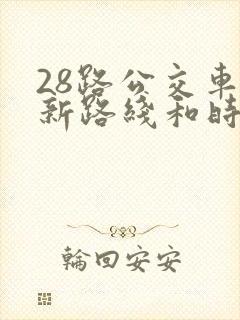 28路公交車
新路綫和時
輪回安安